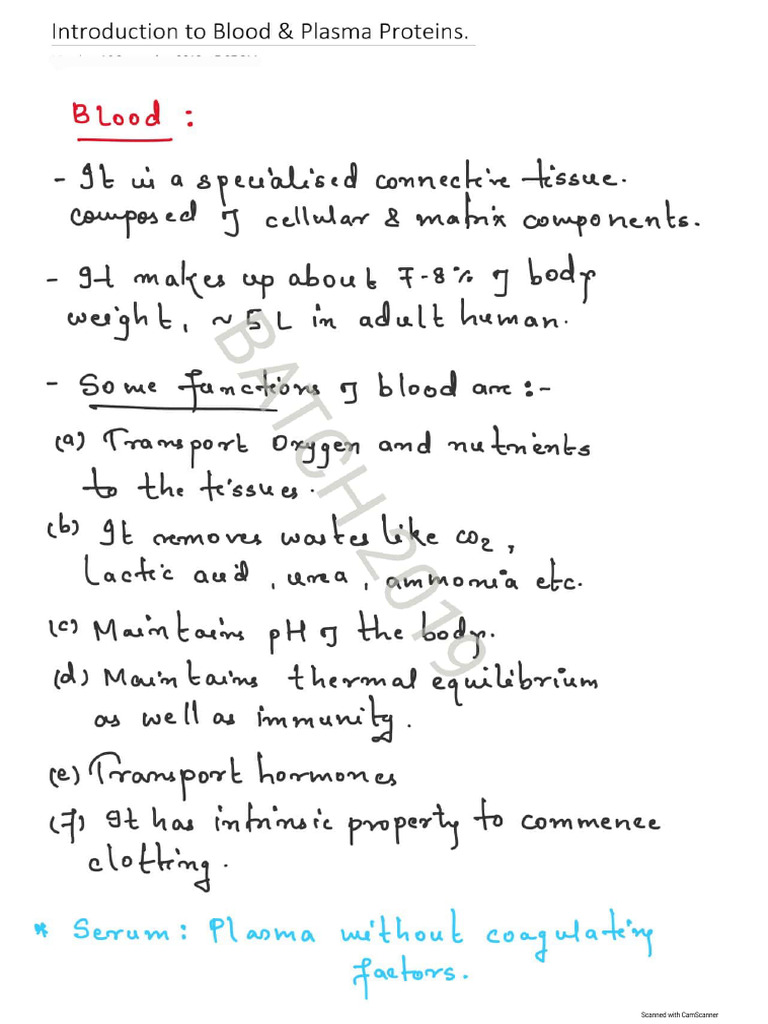 Introduction to Blood & Plasma Proteins.
Blood :
- It is a specialised connective tissue.
composed of cellular & matrix components.
- It makes up about 7-8% of body
weight, ~ 5 L in adult human.
- Some functions of blood are :-
(a) Transport Oxygen and nutrients
to the tissues.
(b) It removes wastes like CO2,
Lactic acid, urea, ammonia etc.
(c) Maintains pH of the body.
(d) Maintains thermal equilibrium
as well as immunity.
(e) Transport hormones
(f) It has intrinsic property to commence
clotting.
* Serum: Plasma without coagulating
factors.
BATCH 2019
Scanned with CamScanner